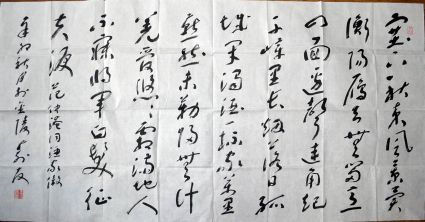 塞下秋来风景异
衡陽雁去無留意
四面邊聲連角起
千嶂里长烟落日孤
城闭濁酒一杯家萬里
燕然未勒歸無计
羌管悠悠霜满地人
不寐将军白髮征
夫淚 范仲淹词渔家傲
秋月於金陵